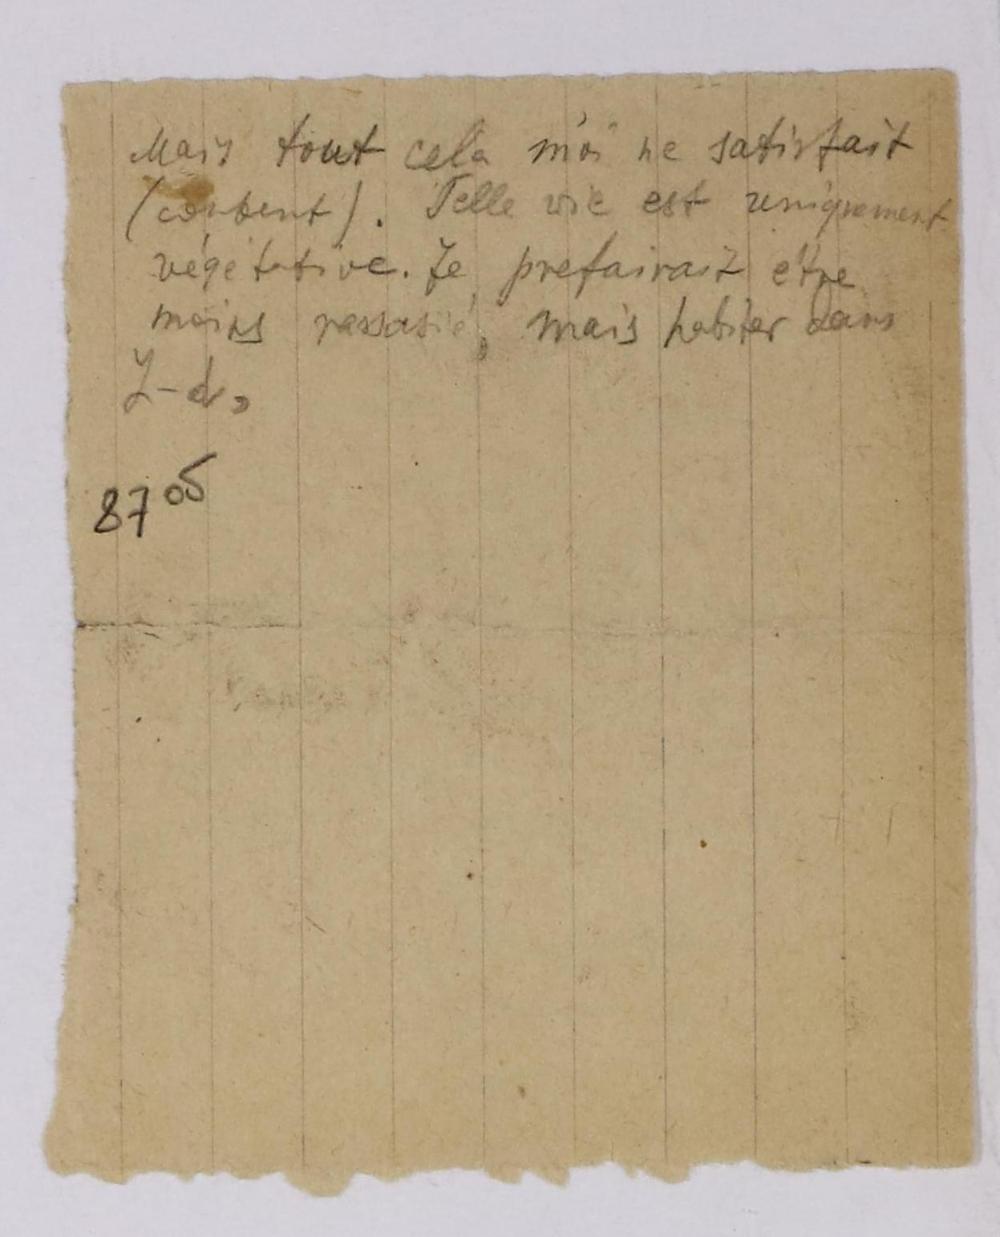 Mais tout cela moi ne satisfait
(content). Telle vie est uniquement
végétative. Je prefairait être
moins rassasié, mais habiter dans
L-d,
87 05